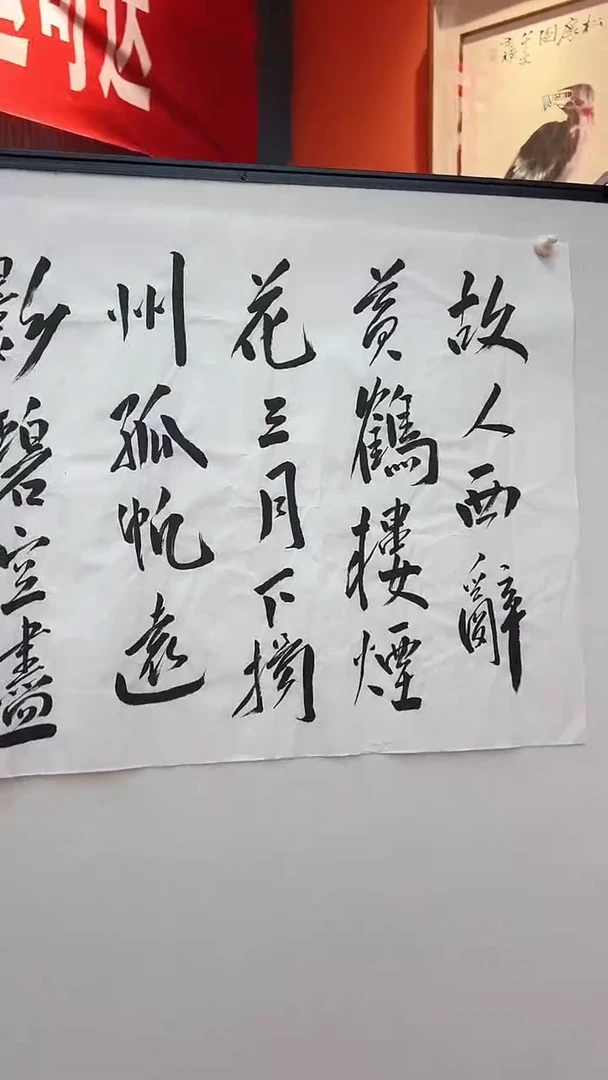 可达
松鷹圖
故人西辭
黄鶴樓煙
花三月下揚
州孤帆遠
影碧空盡